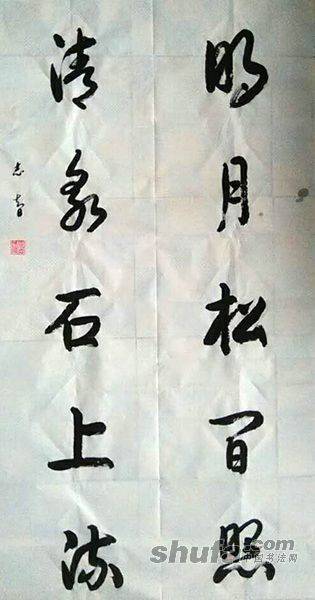 明月松间照
清泉石上流
志
中国书法网